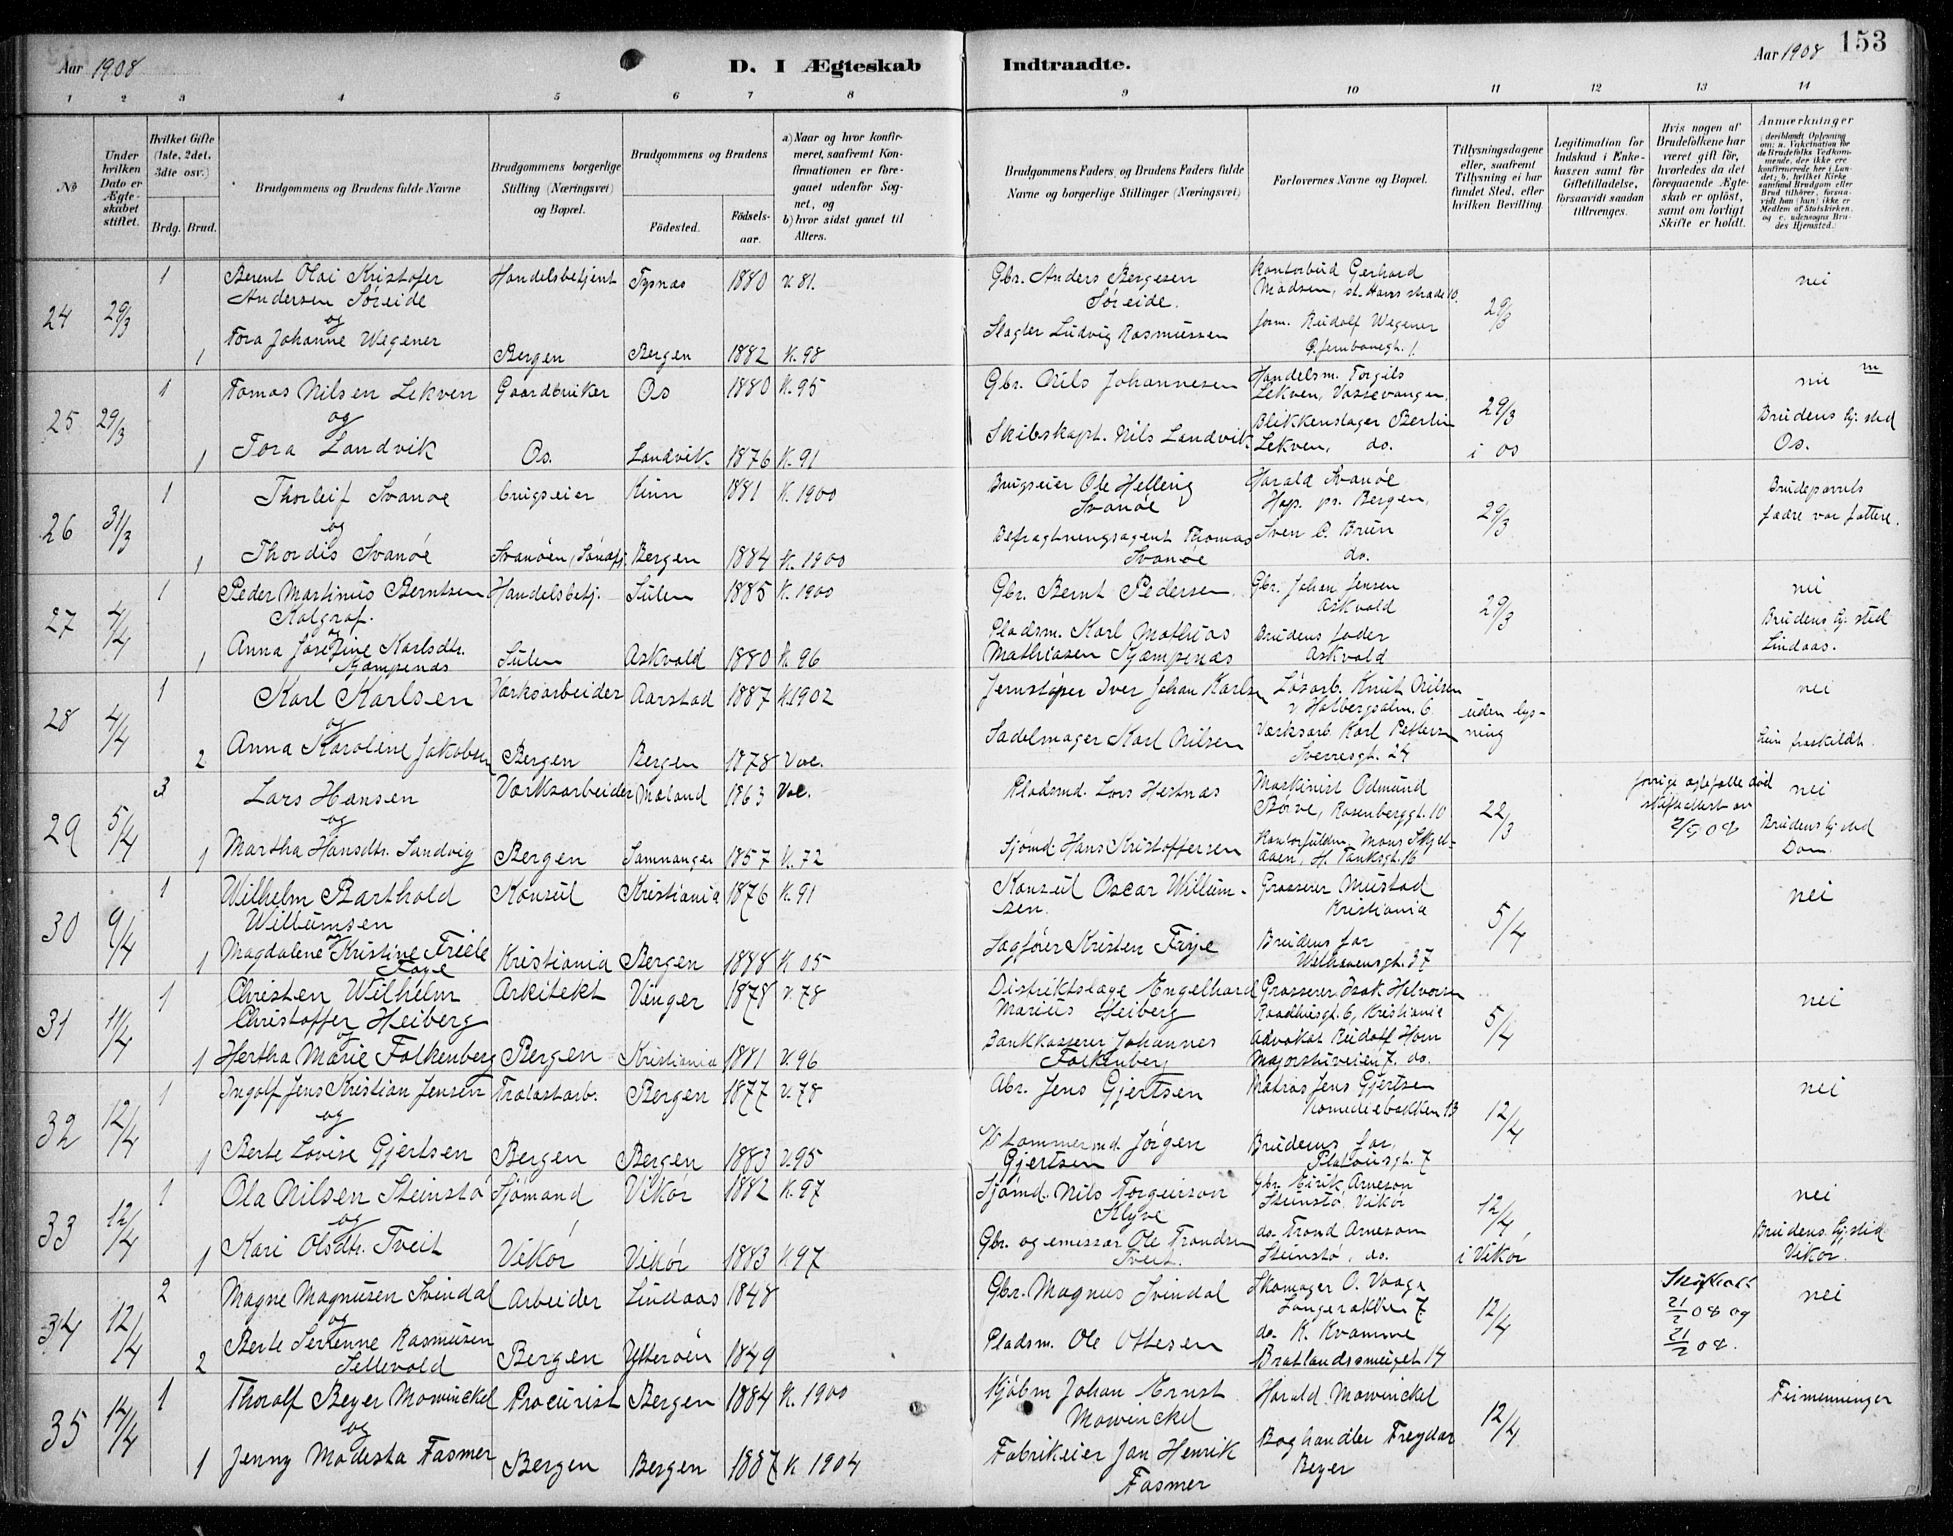 Aar 1908
D. I Ægteskab
Indtraadte.
Aar 1908
153
1 2 3 4 5 6 7 8
9 10 11 12 13 14
No
Under hvilken Dato er Ægteskabet stiftet.
Hvilket Gifte (1ste, 2det, 3die osv.)
Brdg. Brud.
Brudgommens og Brudens fulde Navne
Brudgommens borgerlige Stilling (Næringsvei) og Bopæl.
Brudgommens og Brudens
Fødested.
Fødselsaar.
a) Naar og hvor konfirmeret, saafremt Konfirmationen er foregaaet udenfor Sognet, og
b) hvor sidst gaaet til Alters.
Brudgommens Faders, og Brudens Faders fulde Navne og borgerlige Stillinger (Næringsvei)
Forlovernes Navne og Bopæl.
Tillysningsdagene eller, saafremt Tillysning ei har fundet Sted, efter hvilken Bevilling.
Legitimation for Indskud i Enkekassen samt for Giftetilladelse, forsaavidt saadan tiltrænges.
Hvis nogen af Brudefolkene har været gift før, hvorledes da det foregaaende Ægteskab er opløst, samt om lovligt Skifte er holdt.
Anmærkninger
(deriblandt Oplysning om: a. Vakcination for de Brudefolks Vedkommende, der ikke ere konfirmerede her i Landet; b. hvilket Kirkesamfund Brudgom eller Brud tilhører, forsaavidt han (hun) ikke er Medlem af Statskirken, og c. udensogns Brudes Hjemsted.)
24 29/3 1 Berent Olai Kristofer Handelsbetjent Tysnæs 1880 v. 81. Gbr. Anders Bergesen Kontorbud Gerhard nei
Andersen Søreide Søreide. Madsen, st. Hans strade 10. 29/3
og
1 Tora Johanne Wegener Bergen Bergen 1882 K. 98 Slagter Ludvig Rasmussen form. Rudolf Wegener
25 29/3 1 Tomas Nilsen Lekven Gaardbruker Os 1880 K. 95 Gbr. Nils Johannesen Handelsm. Torgils nei
og Lekven, Vossevangen. 29/3
1 Tora Landvik Os. Landvik 1876 K. 91 Skibskapt. Nils Landvik Blikkenslager Bertin Brudens hj. sted
Lekven, do. i os Os.
26 31/3 1 Thorleif Svanøe brugseier Kinn 1881 K. 1900 Brugseier Ole Helling Harald Svanøe Brudeparrets
og Svanøe Hop. pr. Bergen. 29/3 fædre var fættere.
1 Thordis Svanøe Svanøen, Søndfj. Bergen 1884 K. 1900 Befragtningsagent Thomas Sven C. Brun
Svanøe do.
27 4/4 1 Peder Martinus Berntsen Handelsbetj. Sulen 1885 K. 1900 Gbr. Bernt Pedersen Gbr. Johan Jensen nei
Kolgrof. Askvold 29/3
og
1 Anna Josefine Karlsdtr. Sulen Askvold 1880 K. 96 Pladsm. Karl Mathias Brudens fader Brudens hj. sted
Kjæmpenæs Mathiasen Kjæmpenæs Askvold Lindaas.
28 4/4 1 Karl Karlsen Værksarbeider Aarstad 1887 K. 1902 Jernstøper Iver Johan Karlsen Løsarb. Knut Nilsen nei
og v. Holbergsalm. 6 uden lysning
2 Anna Karoline Jakobsen Bergen Bergen 1878 Vac. Sadelmager Karl Nilsen Værksarb. Karl Pettersen
Sverresgt. 24 hun fraskildt.
29 5/4 3 Lars Hansen Værksarbeider Mæland 1863 Vac. Pladsmd. Lars Hestnæs Maskinist Odmund forrige ægtefælle død nei
og Børve, Rosenberggt. 10 22/3
1 Martha Hansdtr. Sandvig Bergen Samnanger 1857 K. 72 Sjømd. Hans Kristoffersen Brudens hj. sted
H. Tanksgt. 16 Dom.
30 9/4 1 Wilhelm Barthold Konsul Kristiania 1876 K. 91 Konsul Oscar Willumsen. Grosserer Mustad nei
Willumsen Kristiania 5/4
og
1 Magdalene Kristine Friele Kristiania Bergen 1888 K 05 Sagfører Kristen Faye Brudens far
Faye Welhavensgt. 37
31 11/4 1 Christen Wilhelm Arkitekt Vinger 1878 v. 78 Distriktslæge Engelhard Grosserer Isak Halvorsen nei
Christoffer Heiberg Marius Heiberg Raadhusgt. 6, Kristiania 5/4
og
1 Hertha Marie Falkenberg Bergen Kristiania 1881 v. 96 Bankkasserer Johannes Advokat Rudolf Horn
Falkenberg Majorstuveien 7. do.
32 12/4 1 Ingolf Jens Kristian Jensen Trælastarb. Bergen 1877 v. 78 Abr. Jens Gjertsen Matros Jens Gjertsen nei
og Komediebakken 13 12/4
1 Berte Lovise Gjertsen Bergen Bergen 1883 v. 95 Tømmermd. Jørgen Brudens far,
Gjertsen Platousgt. 7
33 12/4 1 Ola Nilsen Steinstø Sjømand Vikør 1882 K. 97 Sjømd. Nils Torgeirson Gbr. Eirik Arneson nei
og Klyve Steinstø, Vikør 12/4
1 Kari Olsdtr. Tveit Vikør Vikør 1883 K. 97 Gbr. og emissær Ole Trondsen do. Trond Arneson Brudens hj. sted
Tveit. Steinstø, do. i Vikør Vikør.
34 12/4 2 Magne Magnusen Svindal Arbeider Lindaas 1848 Gbr. Magnus Svindal Skomager O. Vaage nei
og 7 12/4 21/2 08 og
2 Berte Serienne Rasmusen Bergen Ytterøen 1849 Pladsm. Ole Ottesen do. K. Kvamme 21/2 08.
Sellevold Bratlandssmuget 14
35 14/4 1 Thoralf Beyer Mowinckel Procurist Bergen 1884 K. 1900 Kjøbm Johan Ernst Harald Mowinckel Firmenninger
og Mowinckel 12/4
1 Jenny Modesta Fasmer Bergen Bergen 1887 K 1904 Fabrikeier Jan Henrik Boghandler Freydar
Fasmer Beyer